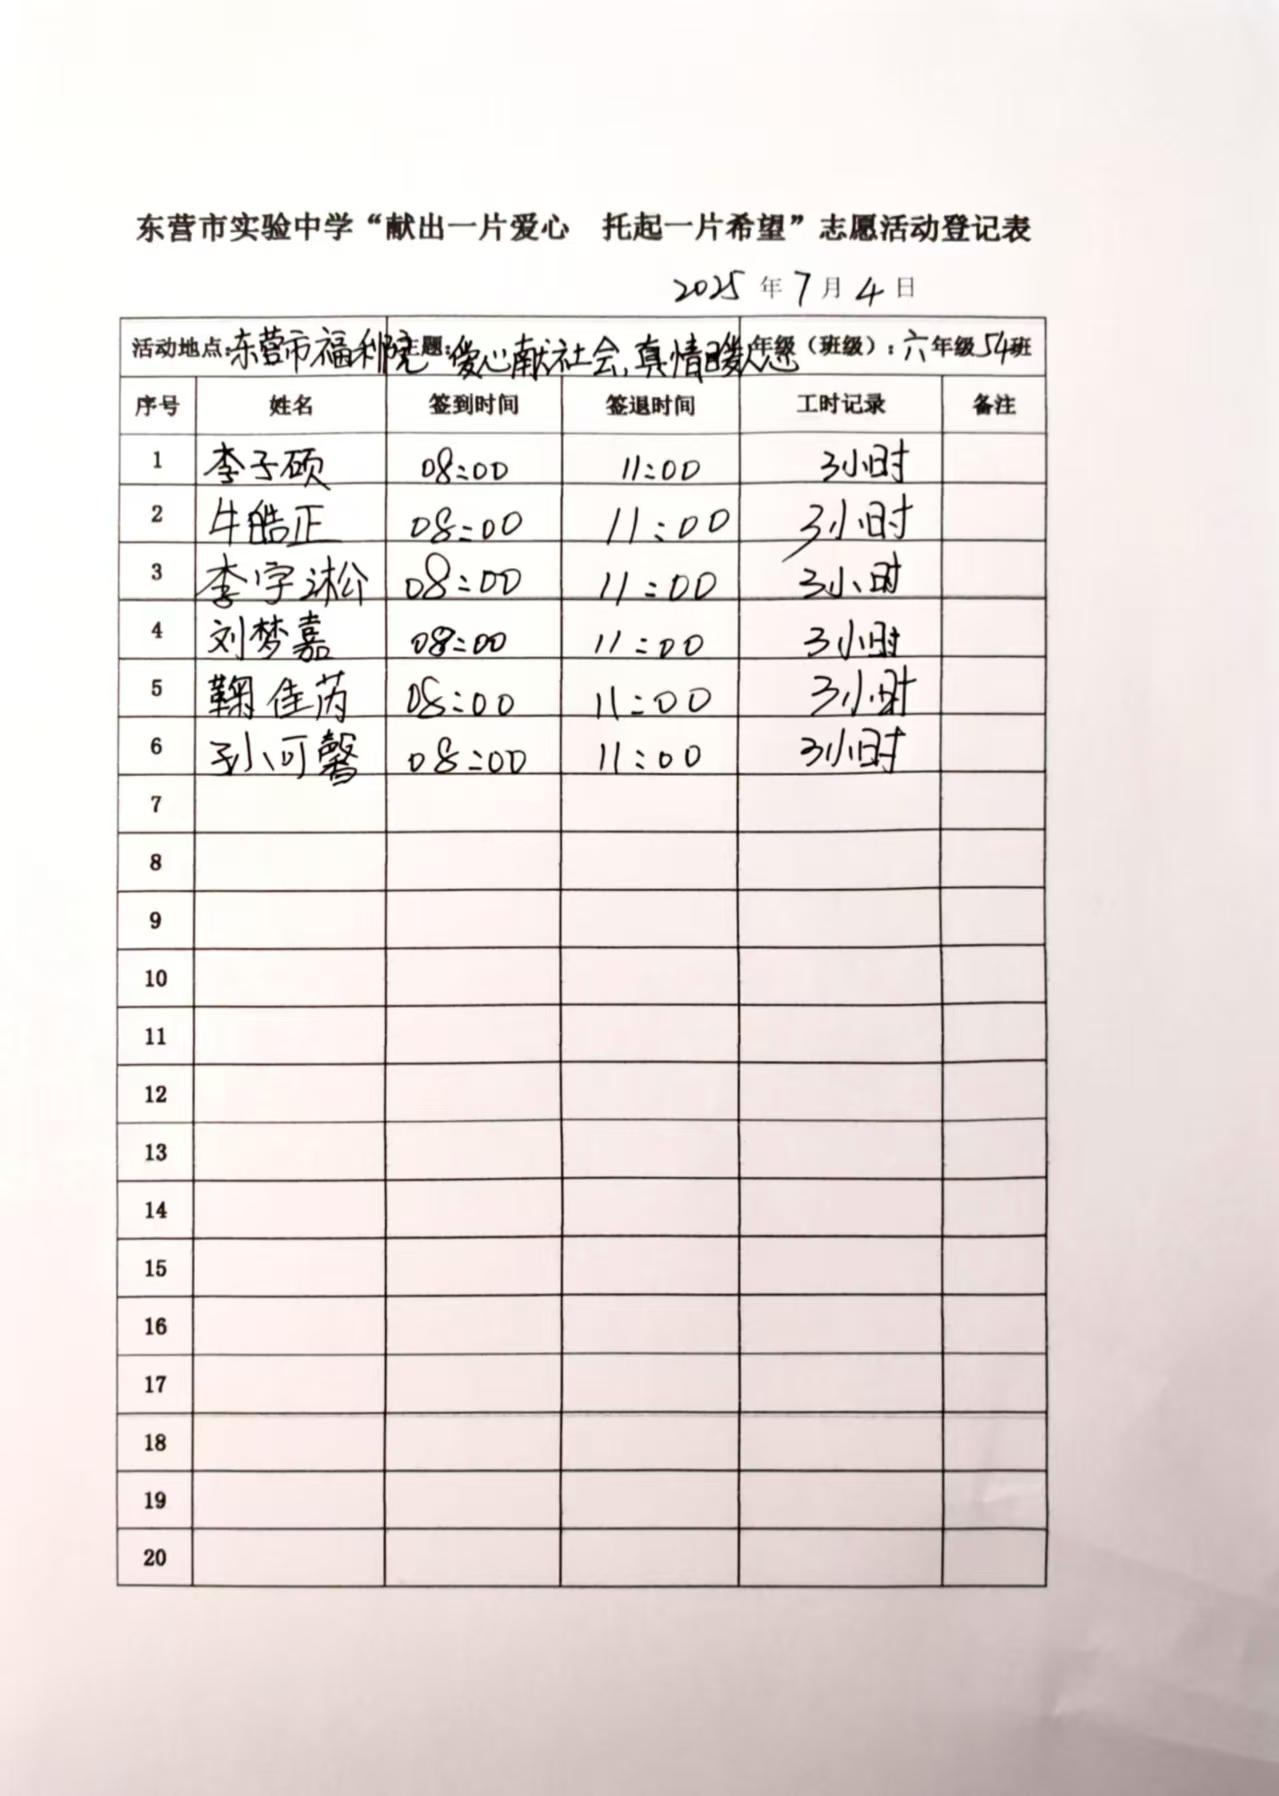 东营市实验中学“献出一片爱心 托起一片希望”志愿活动登记表
2025 年 7 月 4 日
活动地点:东营市福利院 主题:爱心献社会,真情暖人心 年级（班级）:六年级54班
序号 姓名 签到时间 签退时间 工时记录 备注
1 李子硕 08:00 11:00 3小时
2 牛皓正 08:00 11:00 3小时
3 李宇淞 08:00 11:00 3小时
4 刘梦嘉 08:00 11:00 3小时
5 鞠佳芮 08:00 11:00 3小时
6 孙可馨 08:00 11:00 3小时
7
8
9
10
11
12
13
14
15
16
17
18
19
20